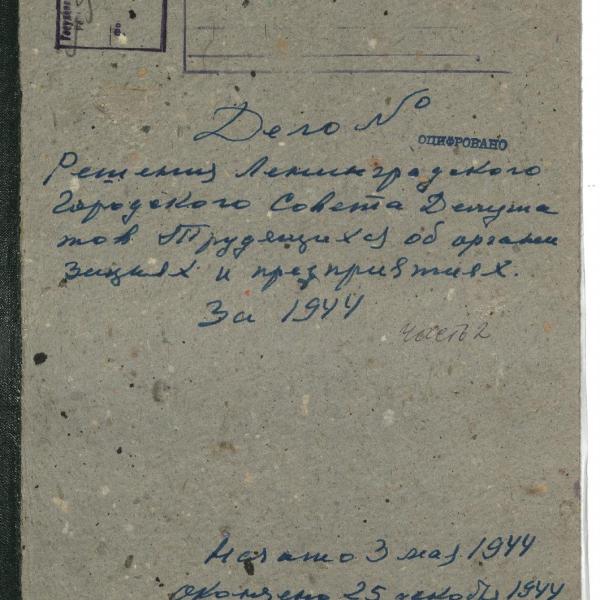 Дело №
ОЦИФРОВАНО
Решения Ленинградского
Городского Совета Депута
тов Трудящихся об органи
зациях и предприятиях.
За 1944
часть 2
Начато 3 мая 1944
окончено 25 декабря 1944